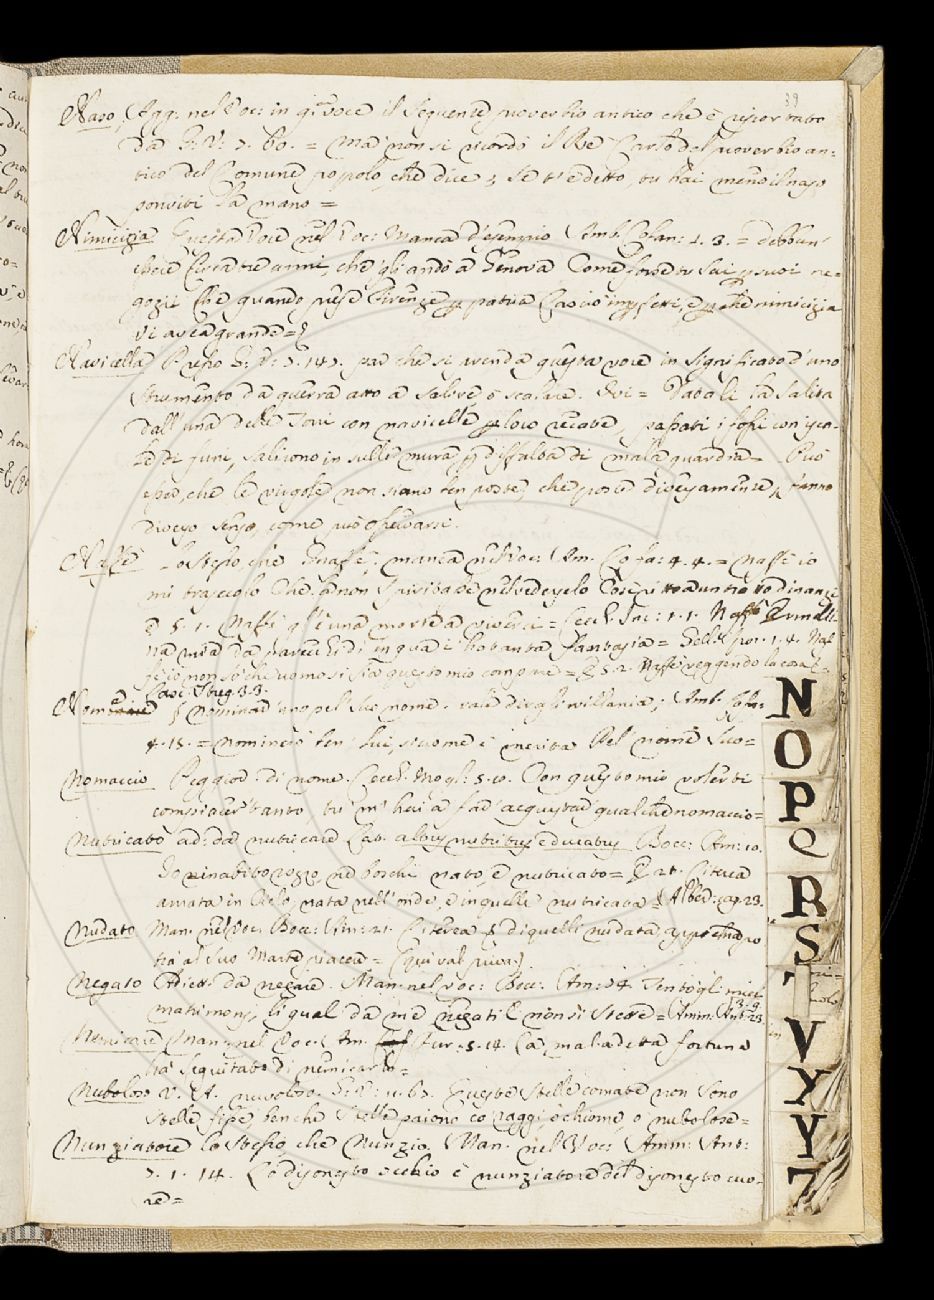 89
Naso, Agg: nel Voc: in q:ta voce il seguente proverbio antico che è riportato
da G: V: 7. 60. = Ma non si ricordò il Re Carlo del proverbio an-
tico del Comune popolo, che dice, se t'è detto tu hai meno il naso
ponviti la mano =
Nimicizia Questa Voce nel Voc: Manca d'esempio Amb. Cofan: 4. 3. = debbun
essere circa tre anni, che gli andò à Genova Come forse tu sai p suoi ne-
gozii che quando prese Firenze p patria lasciò imperfetti, e p che nimicizia
vi avea grande =
Navicella Presso G: V: 7. 147. par che si prenda questa voce in significato d'uno
strumento da guerra atto a salire o scalare. Ivi = Data li la salita
dall'una delle Torri con navicelle p loro recate, passati i fossi con isca-
le di fune, salirono in sulle mura p diffalta di mala guardia = Può
esser, che le virgole non siano ben poste, che poste diversamente, fanno
diverso senso, come può osservarsi.
Naffe Lo stesso, che Gnaffe, manca nel Voc: Am. Cofa: 4. 4. = Naffe io
mi trasecolo Che non spiritate nel vedervelo Così ritto dinanzi
E 5. 1. Naffe q è una morte a viverci = Cecch. Inc: 1. 1. Naffe
na mia da parecchi dì in qua è ho tanta fantasia = Gell. Spor. 1. 4. Naf
fe io non so che uomo si sia questo mio compare = E 5. 2. Naffe veggendo la cosa
Lasc. Streg. 3. 3.
Nome § Nominar uno pel suo nome. vale dirgli villania; Amb. Cofa:
4. 15. = nominerò ben lui, siccome è merita Pel nome suo =
Nomaccio Peggior: di nome. Cecch. Mogl: 5. 10. Con questo mio volerti
compiacer tanto tu m'hai a far acquistar qualche nomaccio =
Nutricato ad: da nutricare Lat. altus, nutritus, educatus Bocc: Am: 10.
Io in abito rozzo, ne boschi nato, e nutricato = E 21. Citerea
amata in Cielo, nata nell'onde, e in quelle nutricata § Alber: cap. 23.
Nudato Man. nel Voc. Bocc: Am: 21. Citerea § di quelli nudata, appo
tra al suo Marte piacea = (qui val priva)
Negato Adiett: da negare. Man: nel voc: Bocc: Am: 34 Tento gl' miei
matrimonj, li qual da me negati E non si stette = Amm: Ant: 23.
3. 9.
Nemicare Man: nel Voc. Am. Fur: 5. 14. La maladetta fortuna
ha seguitato di nemicarlo =
Nubiloso V. A. nuvoloso. G: V: 11. 67. Queste stelle comate non sono
stelle fisse benche stelle paiono co raggi, o chiome, o nubolose =
Nunziatore lo stesso, che Nunzio. Man. nel Voc: Amm: Ant:
7. 1. 14. Lo disonesto occhio è nunziatore del disonesto cuo-
re =
N
O
P
Q
R
S
T
V
Y
Y
Z